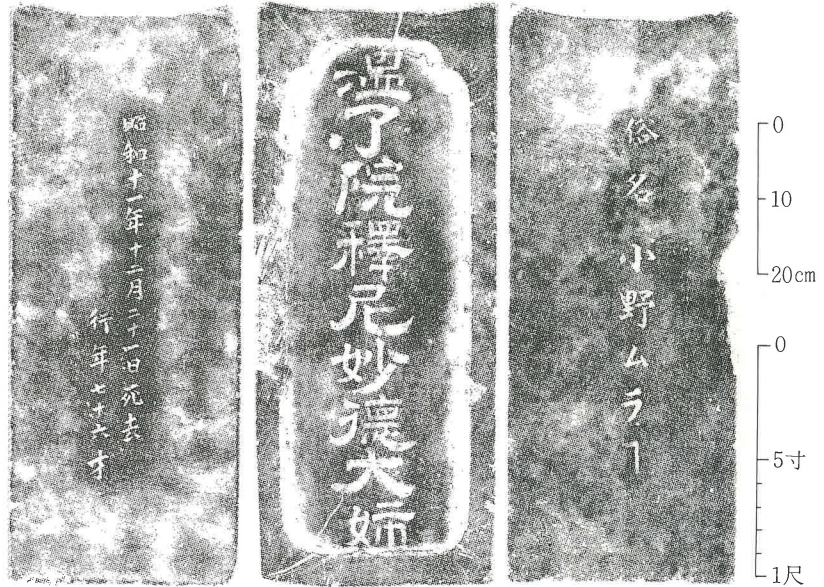 昭和十一年十二月二十一日死去
行年七十六才
温了院釋尼妙德大姉
俗名 小野ムラ
0
10
20cm
0
5寸
1尺